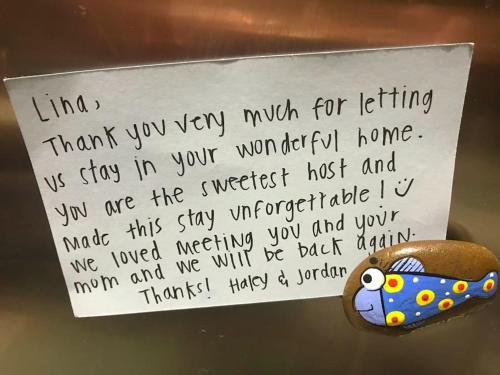 Lina,
Thank you very much for letting
us stay in your wonderful home.
you are the sweetest host and
made this stay unforgettable! :)
we loved meeting you and your
mom and we will be back again.
Thanks! Haley & Jordan